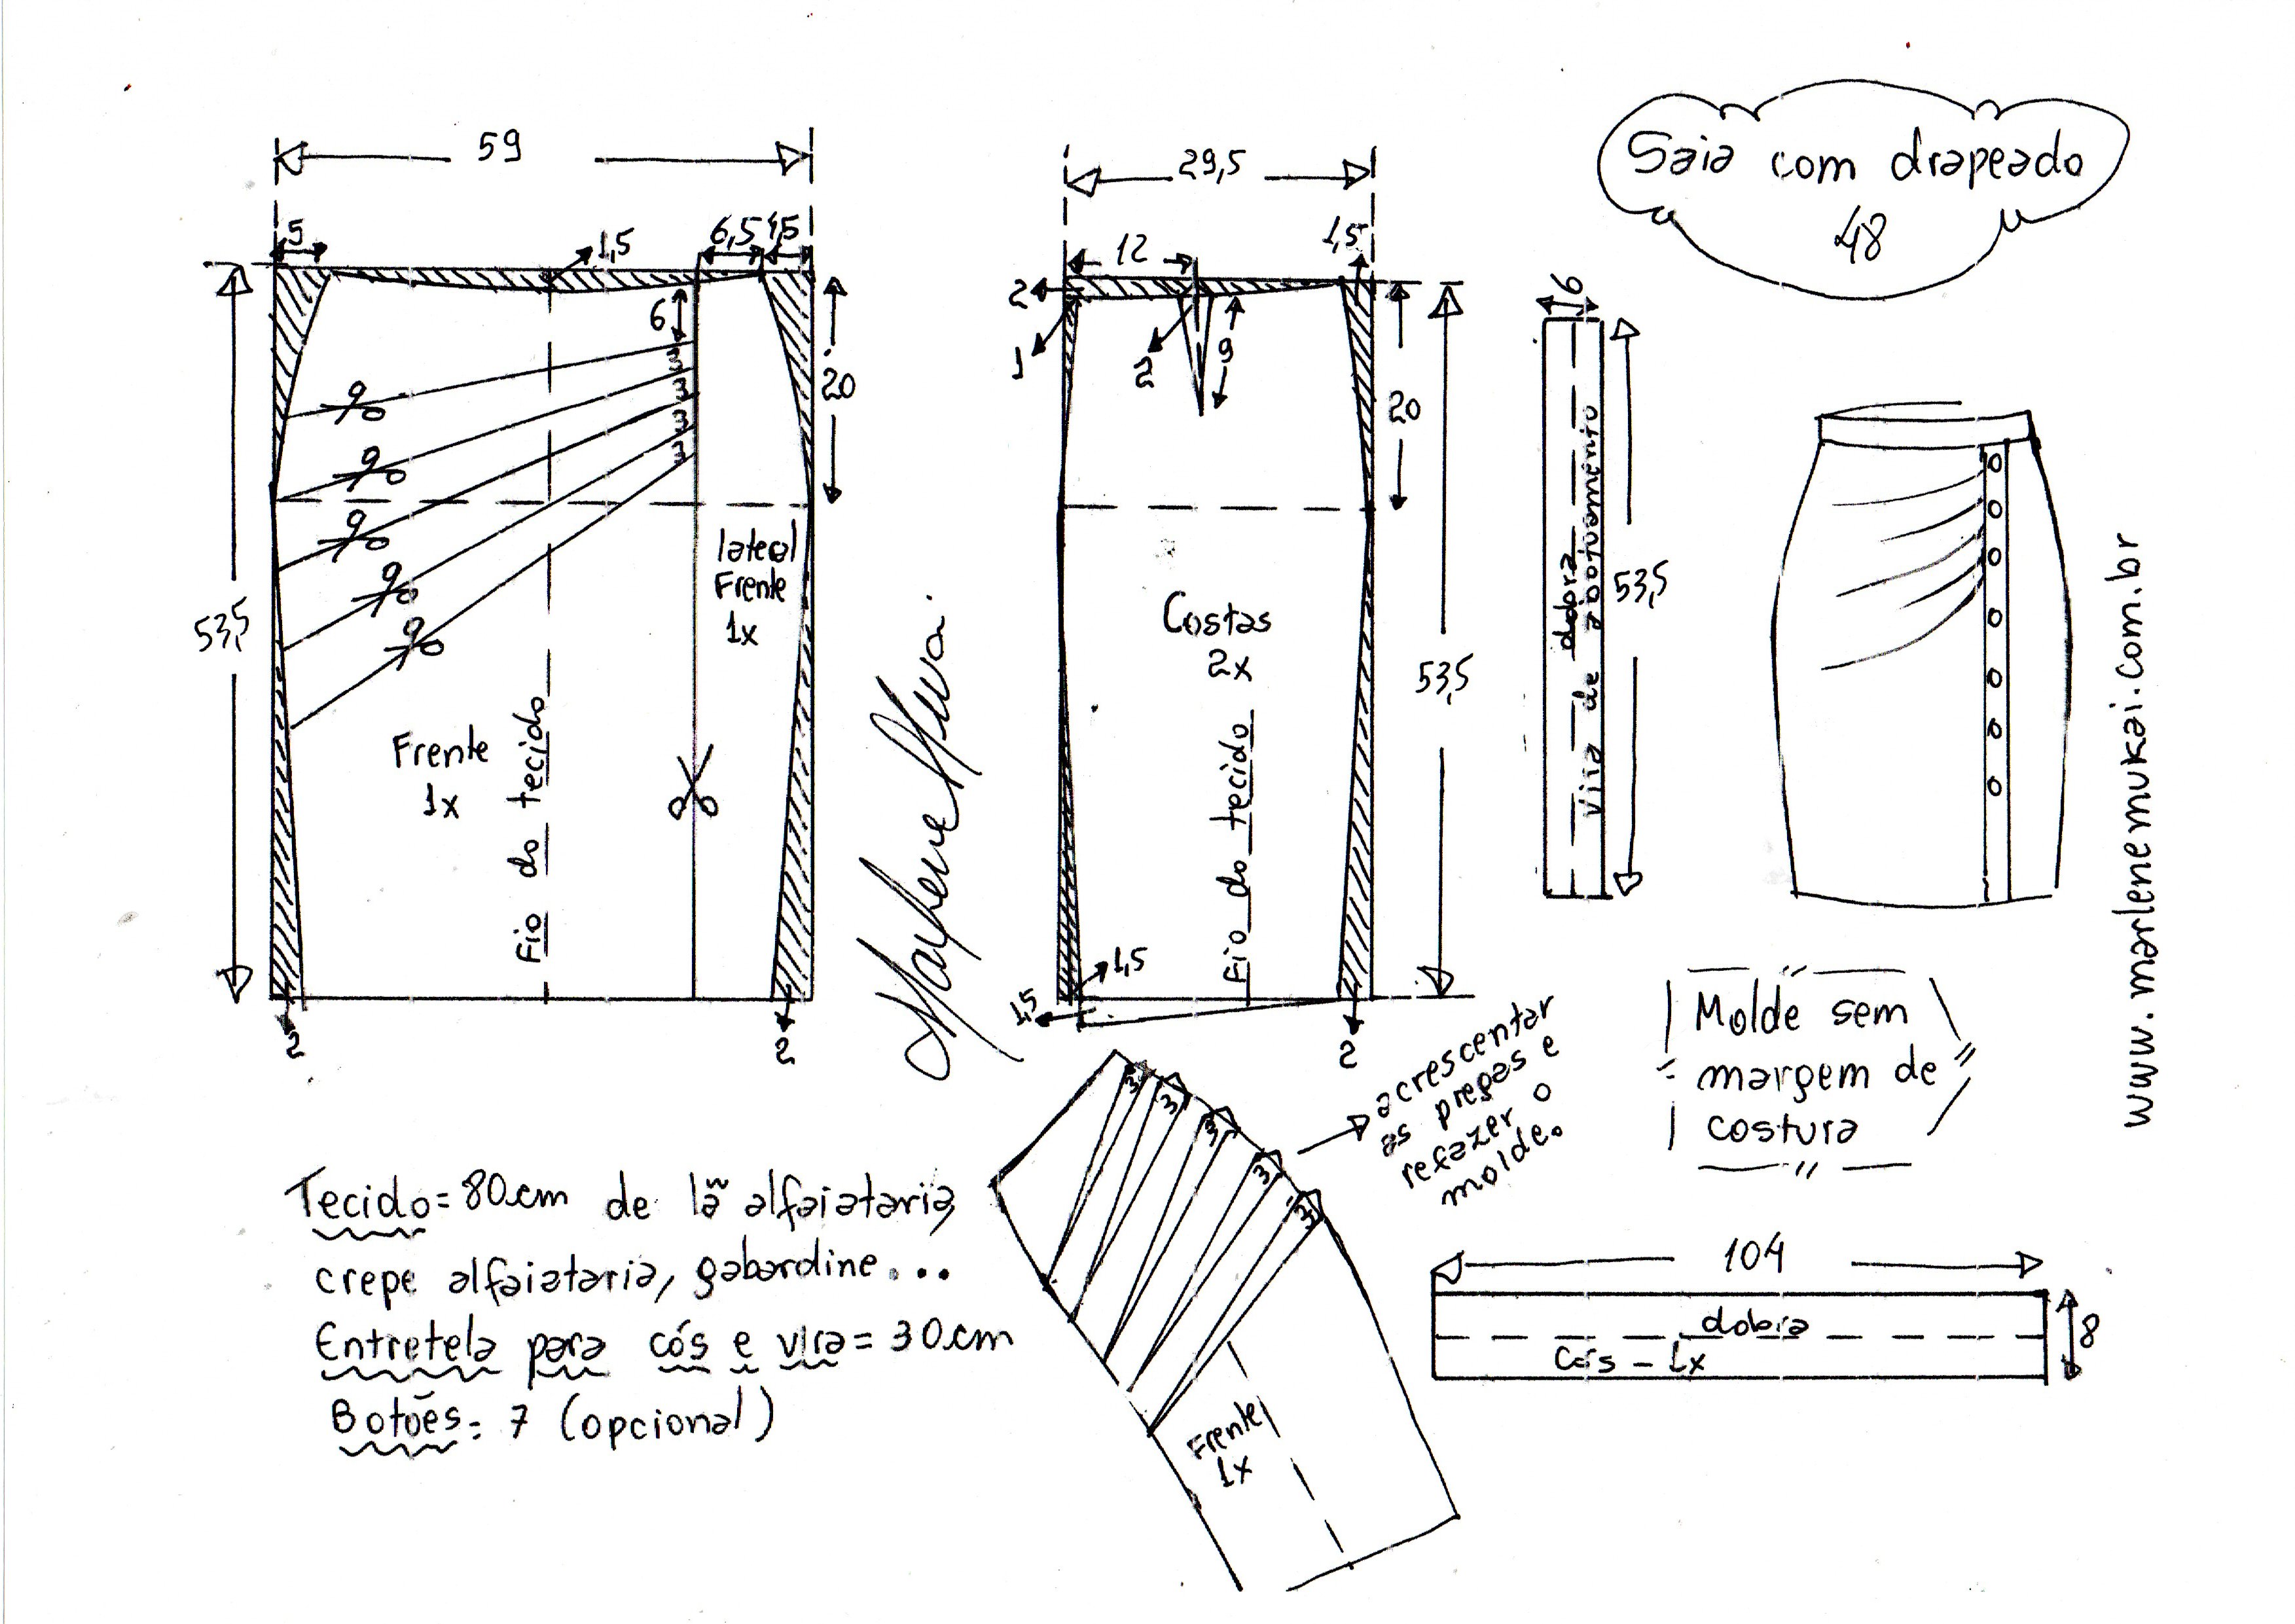 Saia com drapeado
48
59
5
1,5
6,5
6
3
3
3
3
20
53,5
lateral
Frente
1x
Frente
1x
Fio do tecido
2
2
29,5
12
1,5
2
1
2
9
20
Costas
2x
53,5
Fio do tecido
1,5
1,5
2
6
dobra
Vira de abotuamento
53,5
Marlene Mukai.
www.marlenemukai.com.br
Molde sem
margem de
costura
acrescentar
as pregas e
refazer o
molde.
3
3
3
3
3
Frente
1x
104
dobra
Cós - 1x
8
Tecido = 80cm de lã alfaiataria,
crepe alfaiataria, gabardine...
Entretela para cós e vira = 30cm
Botões: 7 (opcional)